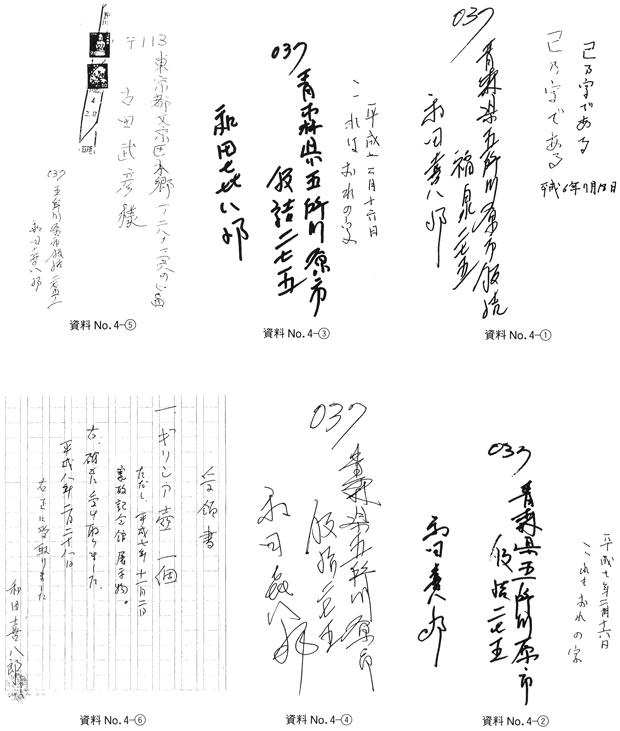 己乃字である
己乃字である
平成6年7月18日
037
青森県五所川原市飯詰
福泉二七五
和田喜八郎
資料No.4−①
平成七年二月十六日
これはおれの字
037
青森県五所川原市
飯詰二七五
和田㐂八郎
資料No.4−③
〒113
東京都文京区本郷
古田武彦様
037
五所川原市飯詰
和田喜八郎
資料No.4−⑤
平成七年二月十六日
これもおれの字
037
青森県五所川原市
飯詰二七五
和田喜八郎
資料No.4−②
037
青森県五所川原市
飯詰二七五
和田喜八郎
資料No.4−④
受領書
一、ギリシア壺 一個
ただし、平成七年十一月二日
記念館展示物。
右、確かに受け取りました。
平成八年
右正に受取りました
和田喜八郎
資料No.4−⑥